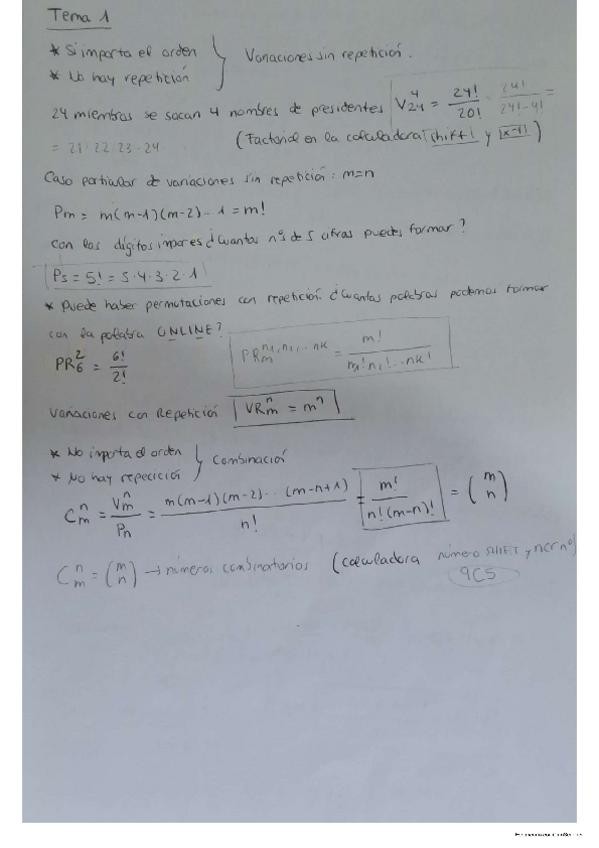 Tema 1
* Si importa el orden
* No hay repetición } Variaciones sin repetición.
24 miembros se sacan 4 nombres de presidentes V_24^4 = 24!/20! = 24!/(24!-4!) =
= 21·22·23·24 (Factorial en la calculadora shift! y x-1!)
Caso particular de variaciones sin repetición: m=n
Pm = m(m-1)(m-2)...1 = m!
Con los dígitos impares ¿Cuantos nºs de 5 cifras puedes formar?
P5 = 5! = 5·4·3·2·1
* Puede haber permutaciones con repetición. ¿Cuantas palabras podemos formar
con la palabra ONLINE?
PR_6^2 = 6!/2! PR_m^{n1,n1,...nk} = m!/(n1!n1!...nk!)
Variaciones con Repetición VR_m^n = m^n
* No importa el orden
* No hay repecición } Combinación
C_m^n = V_m^n/Pn = m(m-1)(m-2)...(m-n+1)/n! = m!/(n!(m-n)!) = (m n)
C_m^n = (m n) → números combinatorios (calculadora número SHIFT y nCr nº)
9C5